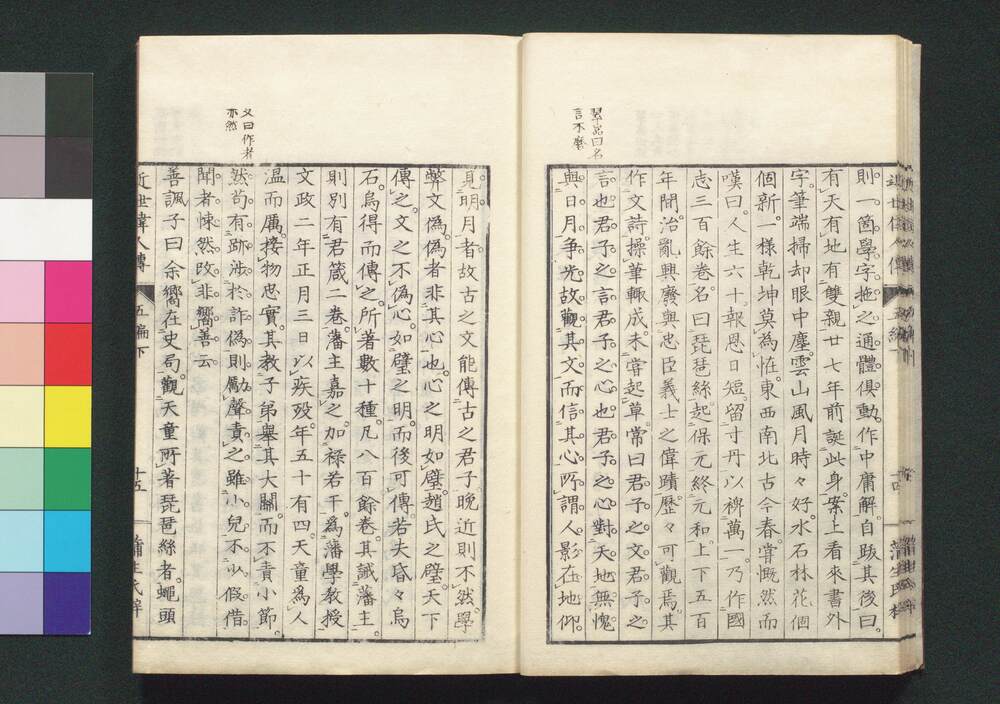 翠岩曰名
言不磨
則一箇學字拖之通體俱動作中庸解自跋其後曰
有天有地有雙親廿七年前誕此身案上看來書外
字筆端掃却眼中塵雲山風月時々好水石林花個
個新一樣乾坤莫爲怪東西南北古今春嘗慨然而
嘆曰人生六十報恩日短留寸丹以裨萬一乃作國
志三百餘卷名曰琵琶絲起保元終元和上下五百
年間治亂興廢與忠臣義士之偉蹟歷々可觀焉其
作文詩操筆輙成未嘗起草常曰君子之文君子之
言也君子之言君子之心也君子之心對天地無愧
與日月争光故觀其文而信其心所謂人影在地仰
又曰作者
亦然
見明月者故古之文能傳古之君子晩近則不然學
弊文僞僞者非其心也心之明如璧趙氏之璧天下
傳之文之不僞心如璧之明而後可傳若夫昏々烏
石烏得而傳之所著數十種凡八百餘卷其誡藩主
則別有君箴二卷藩主嘉之加祿若干爲藩學教授
文政二年正月三日以疾歿年五十有四天童爲人
溫而厲接物忠實其教子弟舉其大關而不責小節
然苟有跡涉於詐僞則勵聲責之雖小兒不以假借
聞者悚然改非嚮善云
善諷子曰余嚮在史局觀天童所著琵琶絲者蠅頭
近世偉人傳
五編下
十五
蒲生氏梓